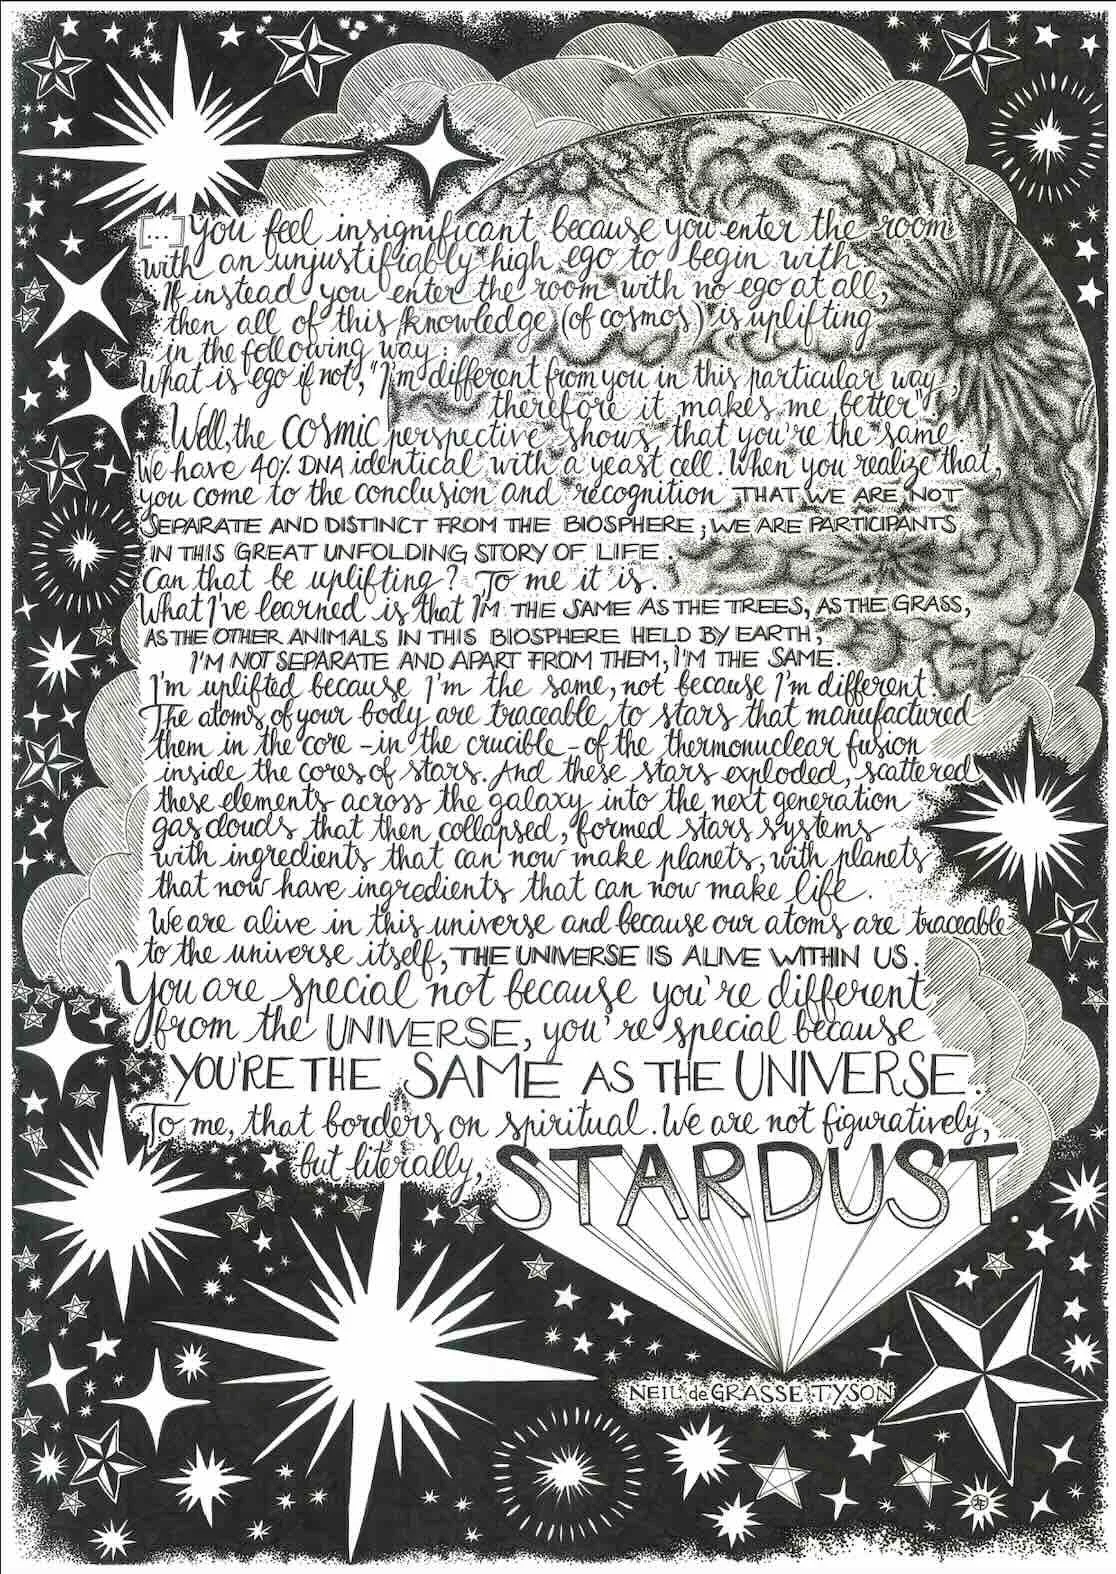 [...] You feel insignificant because you enter the room
with an unjustifiably high ego to begin with
If instead you enter the room with no ego at all,
then all of this knowledge (of cosmos) is uplifting
in the following way:
What is ego if not, "I'm different from you in this particular way,
therefore it makes me better".
Well, the COSMIC perspective shows that you're the same.
We have 40% DNA identical with a yeast cell. When you realize that,
you come to the conclusion and recognition THAT WE ARE NOT
SEPARATE AND DISTINCT FROM THE BIOSPHERE; WE ARE PARTICIPANTS
IN THIS GREAT UNFOLDING STORY OF LIFE.
Can that be uplifting? To me it is.
What I've learned is that I'M THE SAME AS THE TREES, AS THE GRASS,
AS THE OTHER ANIMALS IN THIS BIOSPHERE HELD BY EARTH,
I'M NOT SEPARATE AND APART FROM THEM, I'M THE SAME.
I'm uplifted because I'm the same, not because I'm different.
The atoms of your body are traceable to stars that manufactured
them in the core - in the crucible - of the thermonuclear fusion
inside the cores of stars. And these stars exploded, scattered
these elements across the galaxy into the next generation
gas clouds that then collapsed, formed stars systems
with ingredients that can now make planets, with planets
that now have ingredients that can now make life.
We are alive in this universe and because our atoms are traceable
to the universe itself, THE UNIVERSE IS ALIVE WITHIN US.
You are special not because you're different
from the UNIVERSE, you're special because
YOU'RE THE SAME AS THE UNIVERSE.
To me, that borders on spiritual. We are not figuratively,
but literally, STARDUST.
NEIL deGRASSE TYSON